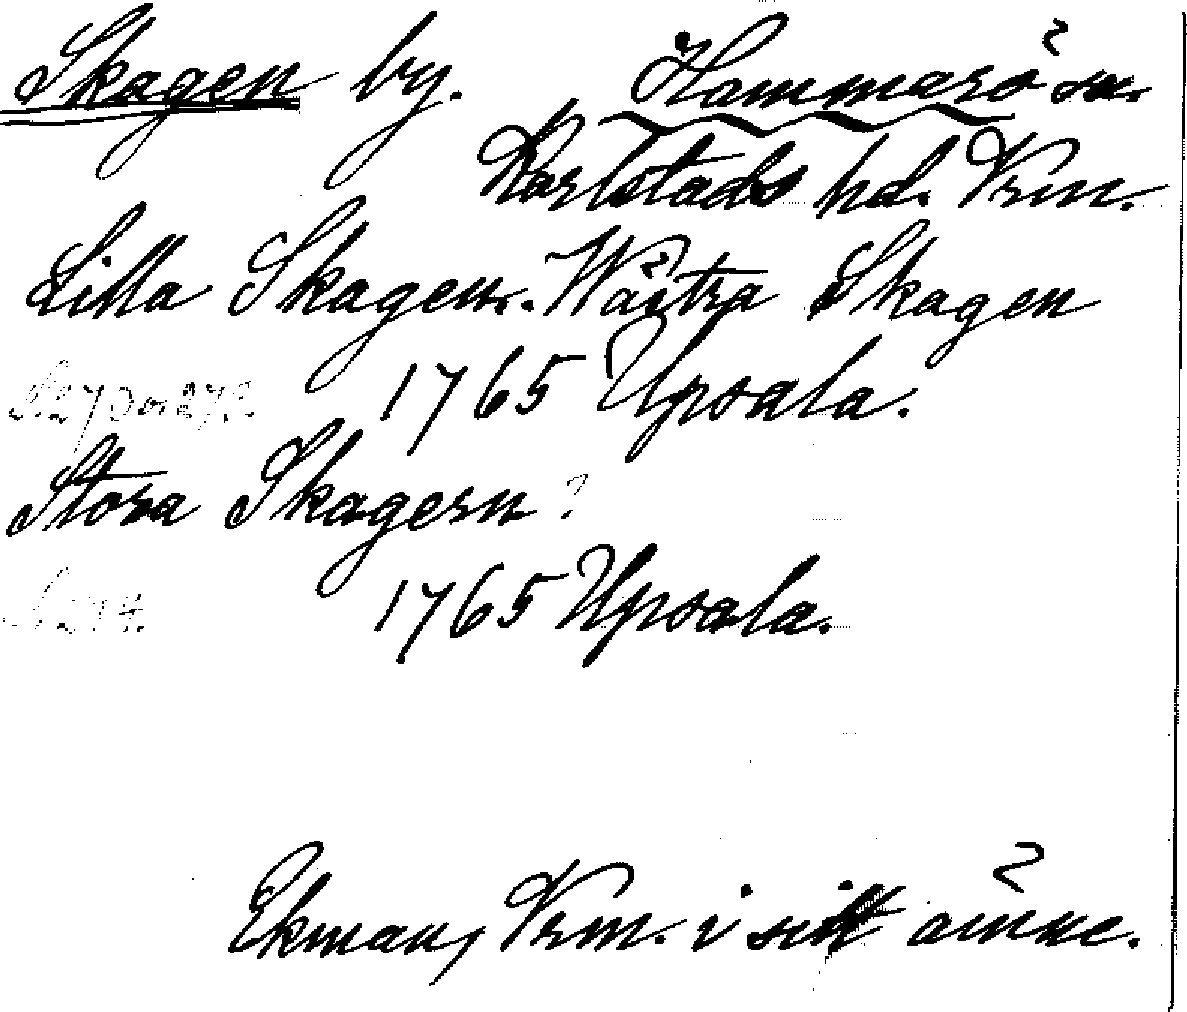 Skagen by. Hammarö sn.
Karlstads hd. Vrm.
Lilla Skagen. Wästra Skagen
1765 Upsala.
Stora Skagern?
1765 Upsala.
Ekman, Vrm. i sitt ämne.